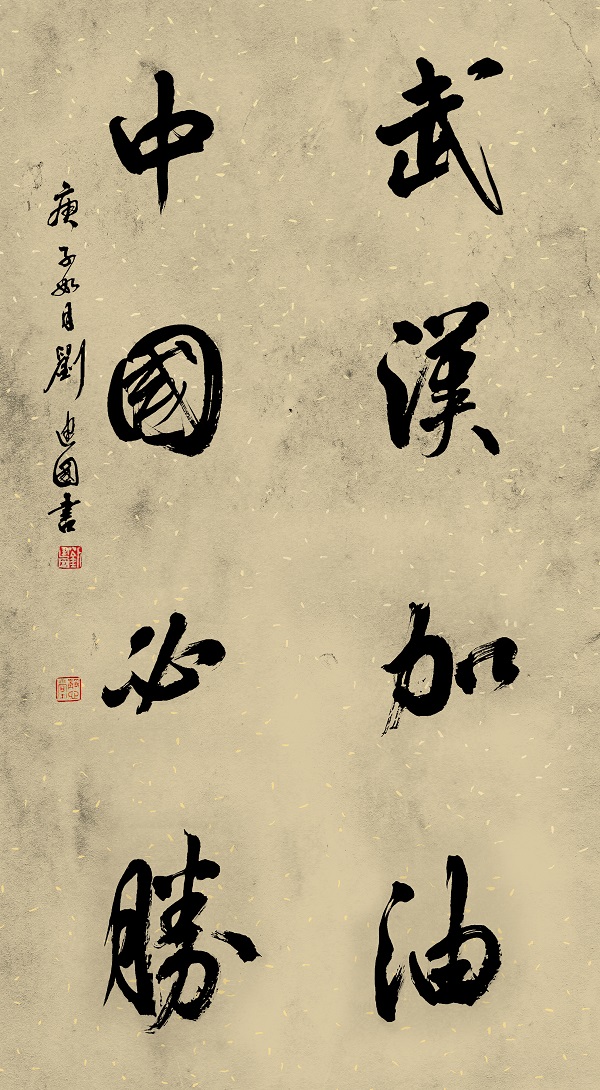 武漢加油
中國必勝
庚子如月劉迪國書